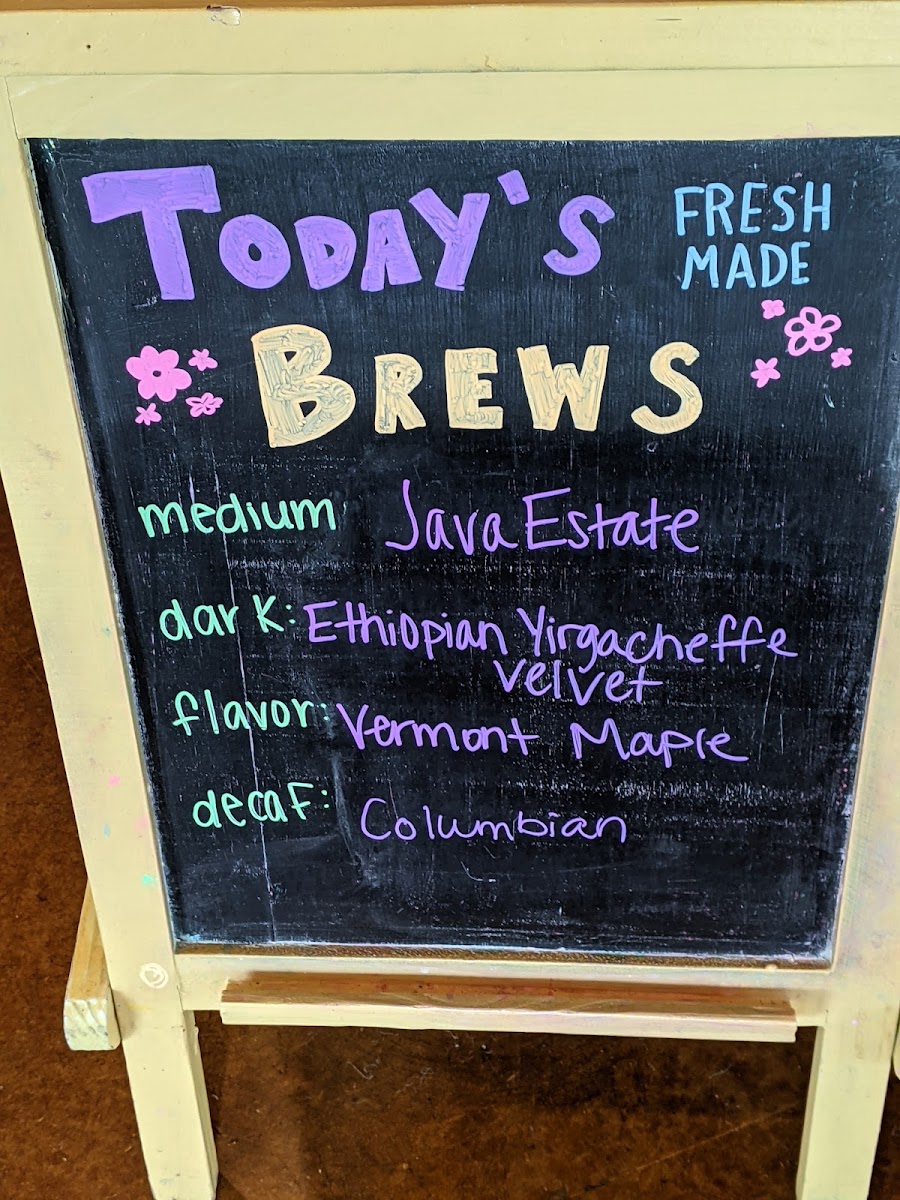 TODAY'S
FRESH
MADE
BREWS
medium Java Estate
dark: Ethiopian Yirgacheffe
velvet
flavor: Vermont Maple
decaf: Columbian